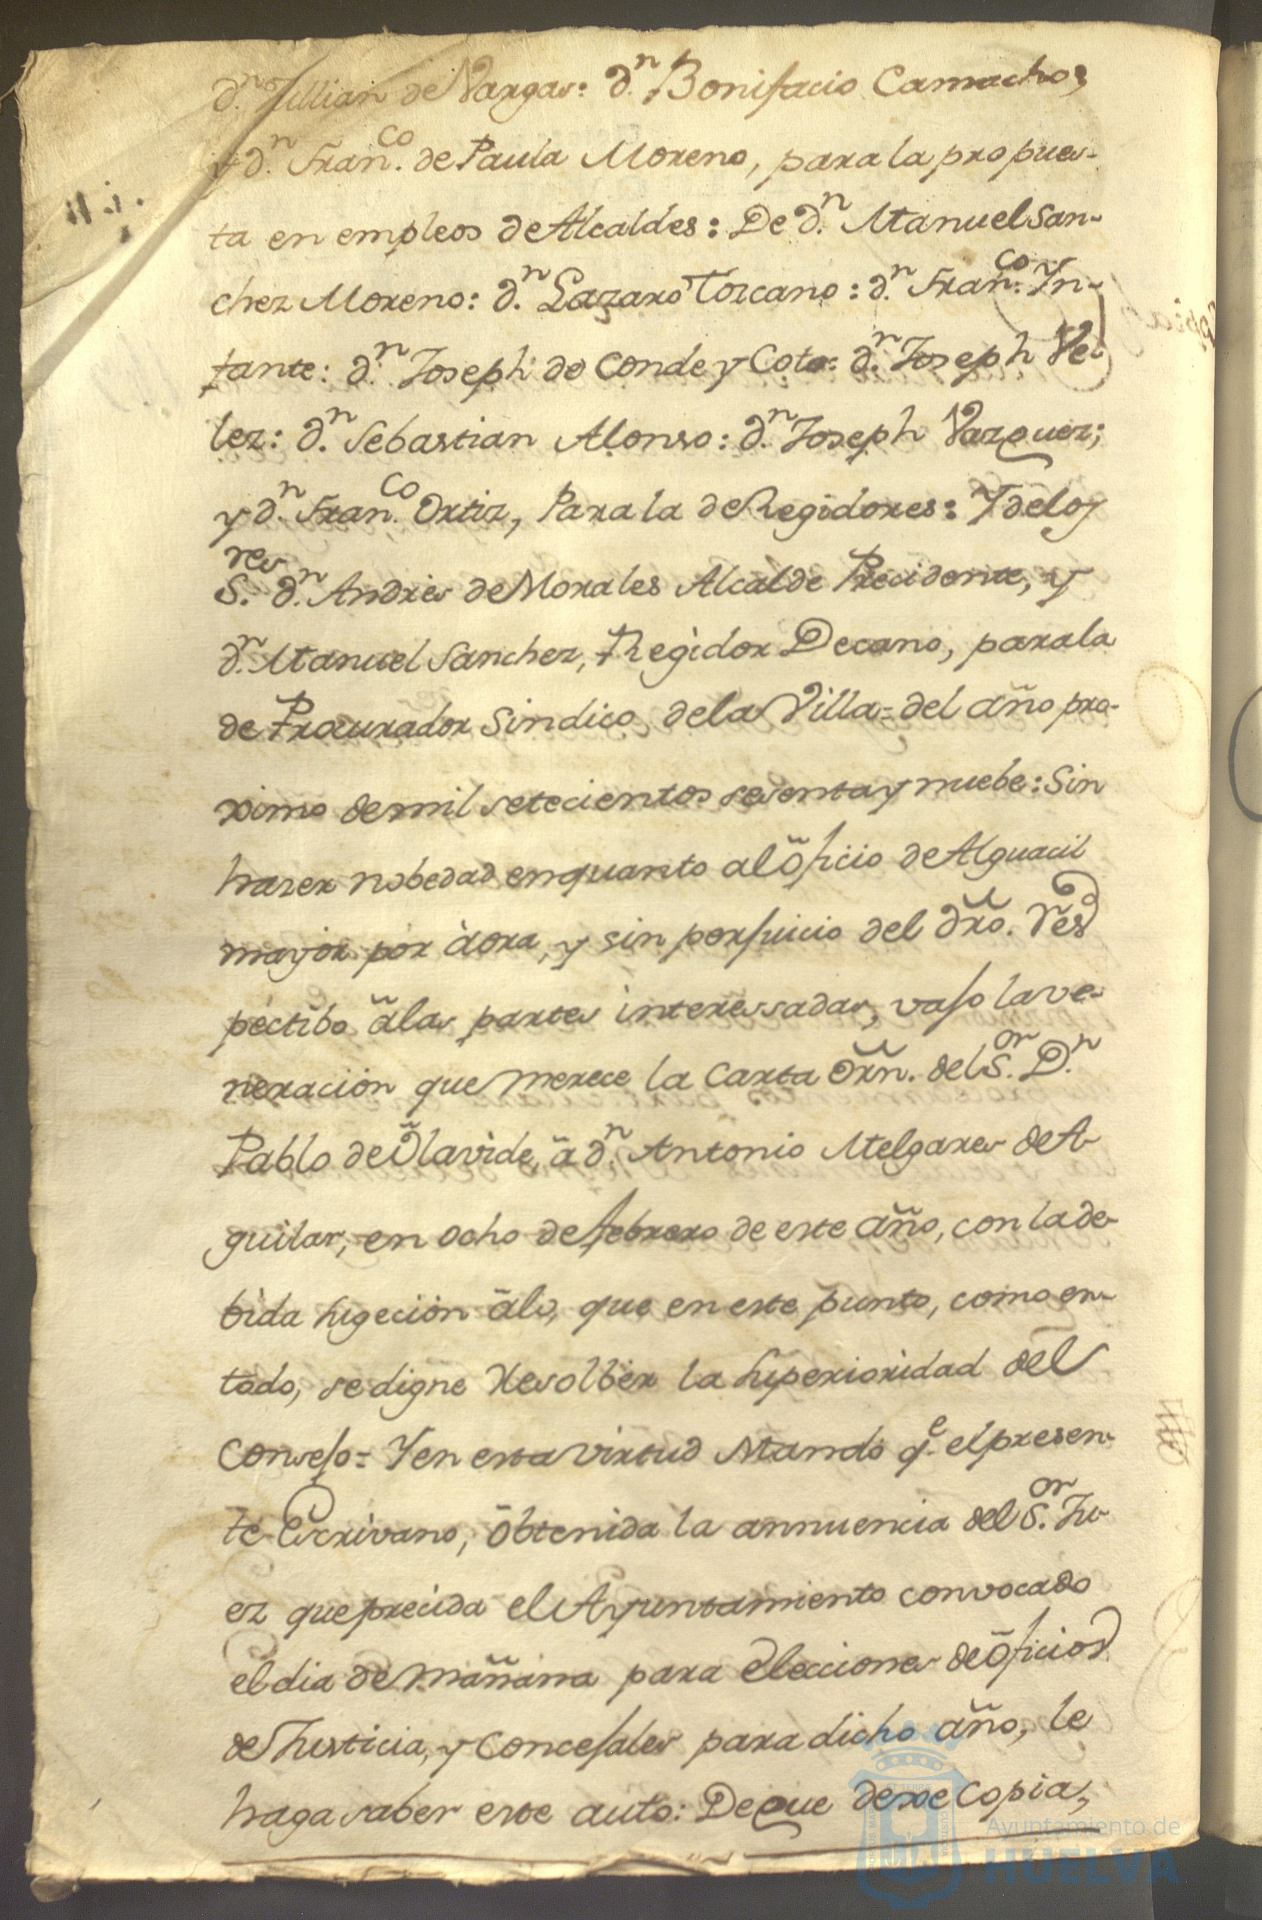 d.n Jullian de Vargas: d.n Bonifacio Camacho;
y d.n Fran.co de Paula Moreno, para la propues-
ta en empleos de Alcaldes: De d.n Manuel San-
chez Moreno: d.n Lazaro Toscano: d.n Fran.co In-
fante: d.n Joseph de Conde y Coto: d.n Joseph Ve-
lez: d.n Sebastian Alonso: d.n Joseph Vazquez;
y d.n Fran.co Ortiz, Para la de Regidores: Y de los
S.res d.n Andres de Morales Alcalde Precidente, y
d.n Manuel Sanchez, Regidor Decano, para la
de Procurador Sindico de la Villa= del año pro-
ximo de mil setecientos sesenta y nuebe: Sin
hazer nobedad en quanto al õficio de Alguacil
mayor por àora, y sin perjuicio del dr̃o. Res
pectibo ã las partes interessadas, vajo la ve-
neracion que merece la Carta õrn. del S.or D.n
Pablo de Õlavide, ã d.n Antonio Melgares de A-
guilar, en ocho de febrero de este año, con la de-
bida sugecion ã lo, que en este punto, como en
todo, se digne Resolber la superioridad del
Consejo= Y en esta virtud Mando q.e el presen-
te Escrivano, õbtenida la annuencia del S.or Ju-
ez que precida el Ayuntamiento convocado
el dia de Mañana para elecciones de õficios
de Justicia, y Concejales para dicho año, le
haga saber este auto: De que dexe Copia,
Ayuntamiento de
HUELVA